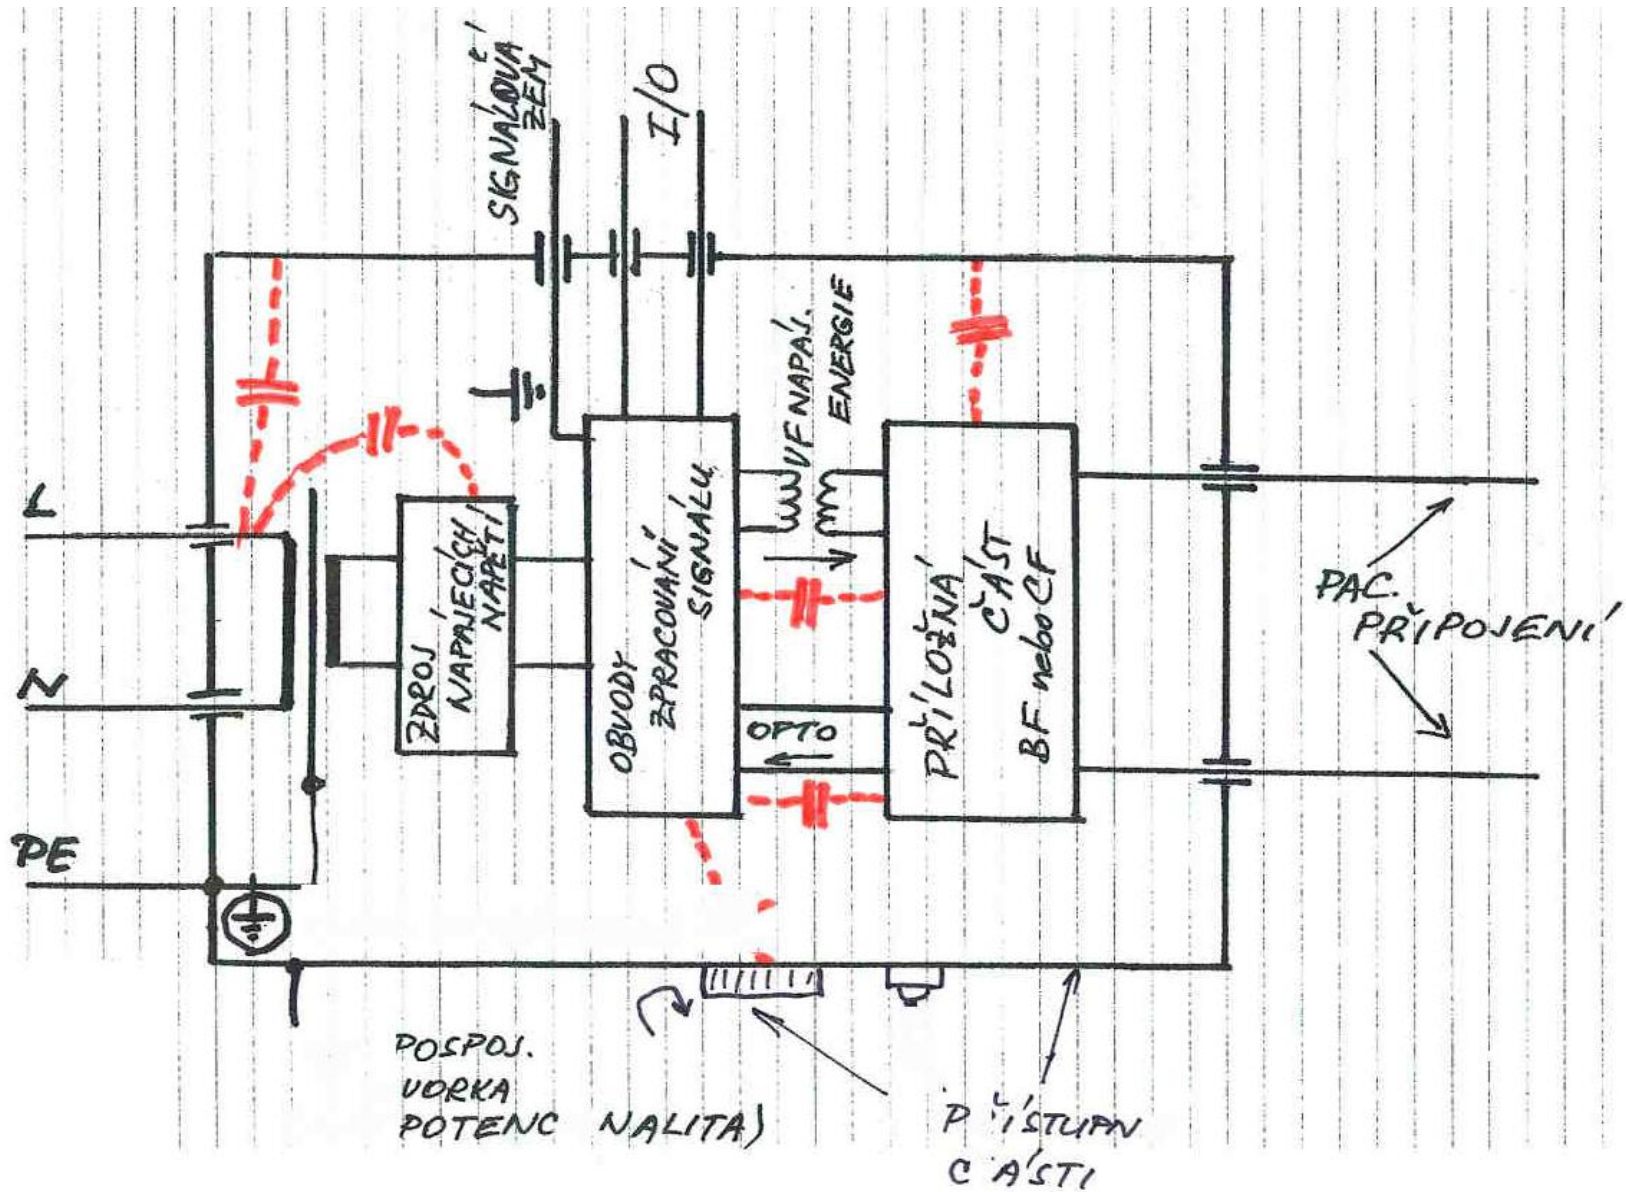 SIGNÁLOVÁ
ZEM
I/O
VF NAPÁJ.
ENERGIE
L
N
PE
ZDROJ
NAPÁJECÍCH
NAPĚTÍ
OBVODY
ZPRACOVÁNÍ
SIGNÁLU
OPTO
PŘÍLOŽNÁ
ČÁST
BF nebo CF
PAC.
PŘIPOJENÍ
POSPOJ.
VORKA
POTENC NALITA)
P ŘÍSTUPN
C ÁSTI